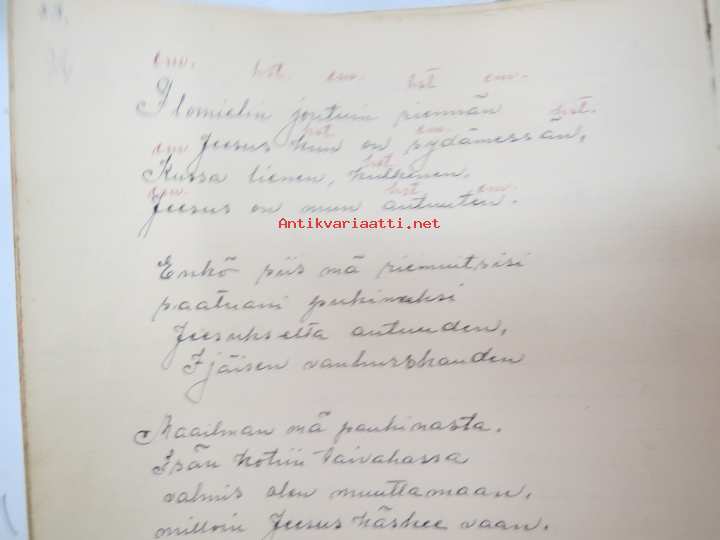 em. hst. em. hst em.
Ilomielin joutuin riennän hst.
hst em.
em Jeesus kun on sydämessän,
hst
Kussa lienen, kulkenen.
em. hst em.
Jeesus on mun autuuten.
Antikvariaatti.net
Enkö siis mä riemuitsisi
paatuani puhimeksi
Jeesukselta autuuden,
Ijäisen vanhurskauden
Maailman mä pauhinasta.
Isän kotiin taivahassa
valmis olen muuttamaan,
milloin Jeesus käskee vaan.